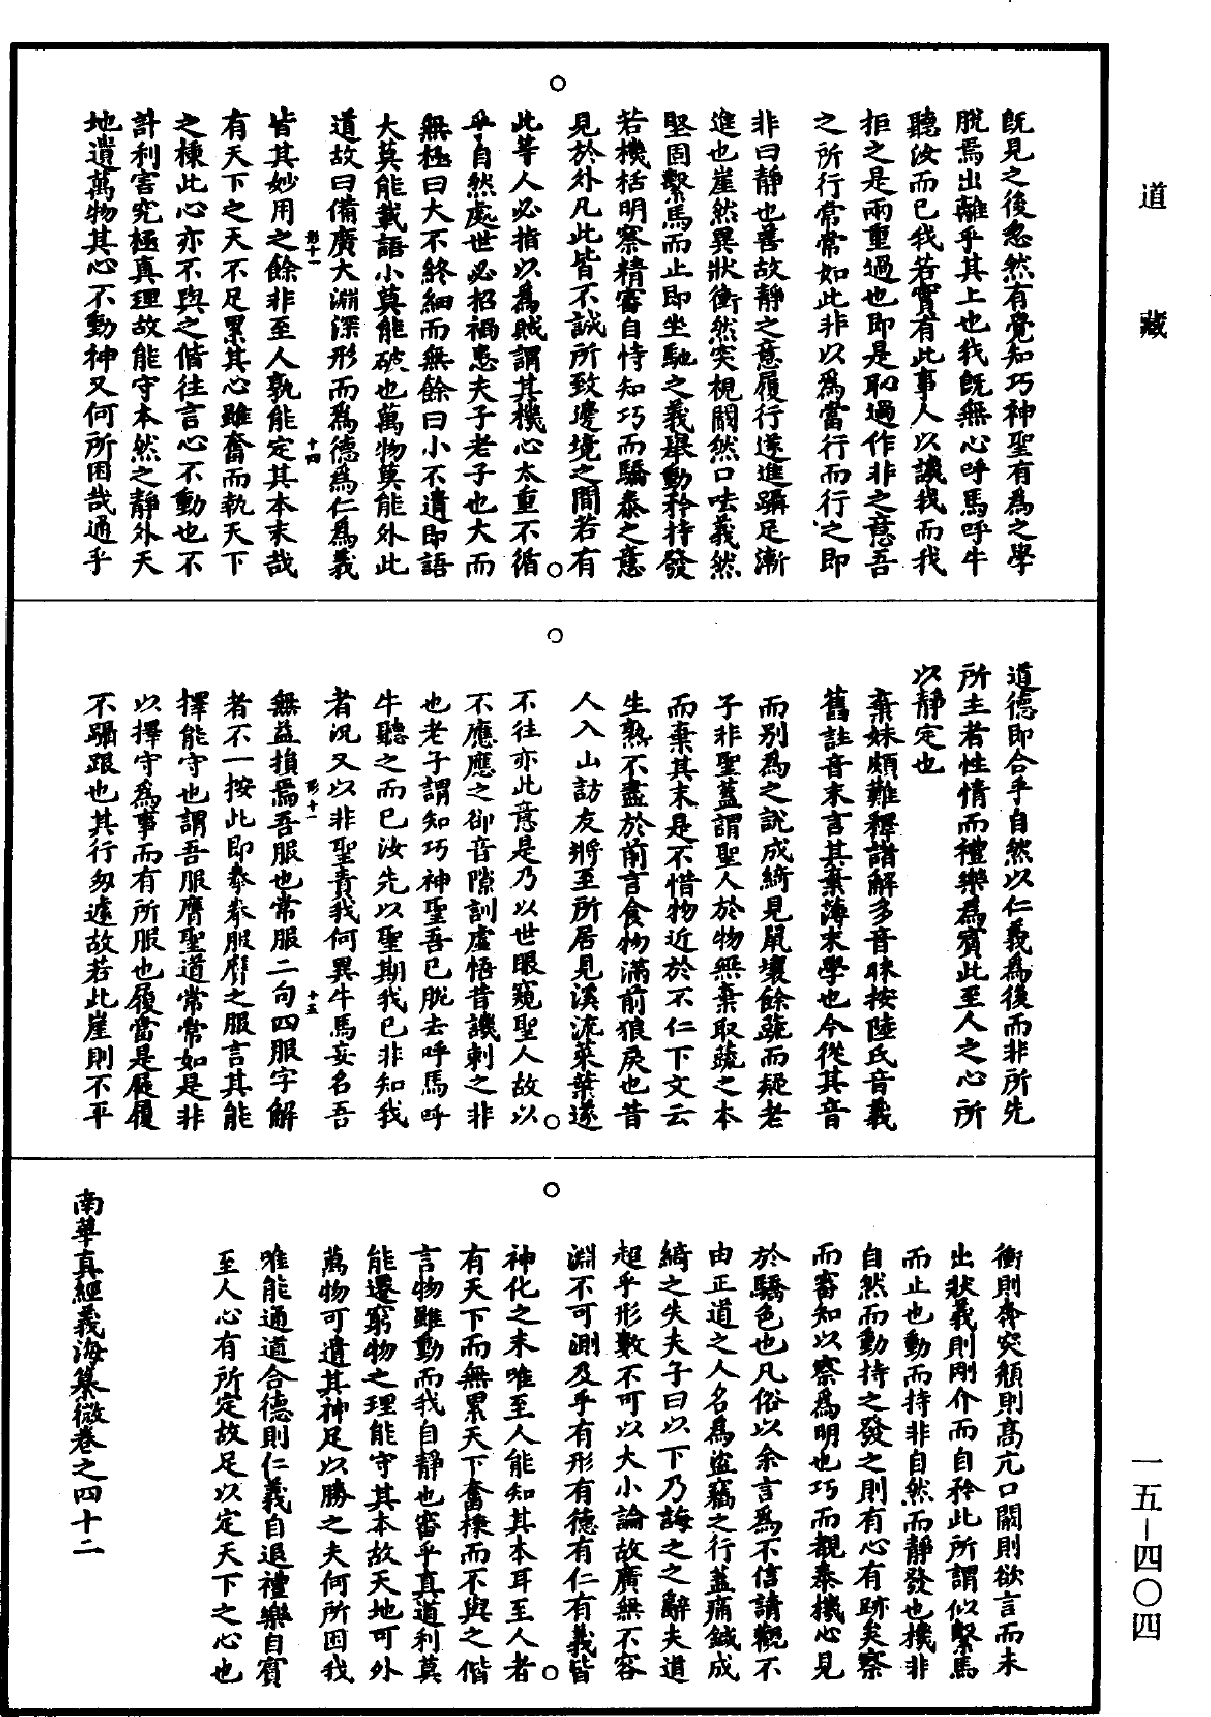 道藏
既見之後忽然有覺知巧神聖有為之學
脫焉出離乎其上也我既無心呼馬呼牛
聽汝而已我若實有此事人以讓我而我
拒之是兩重過也即是恥過作非之意吾
之所行常常如此非以為當行而行之即
非曰靜也善故靜之意履行遂進躡足漸
進也崖然異狀衝然突視闞然口呿義然
堅固繫馬而止即坐馳之義舉動矜持發
若機栝明察精審自恃知巧而驕泰之意
見於外凡此皆不誠所致邊境之間若有
此等人必指以為賊謂其機心太重不循
乎自然處世必招禍患夫子老子也大而
無極曰大不終細而無餘曰小不遺即語
大莫能載語小莫能破也萬物莫能外此
道故曰備廣大淵深形而為德為仁為義
皆其妙用之餘非至人孰能定其本末哉
有天下之天不足累其心雖奮而執天下
之棟此心亦不與之偕往言心不動也不
計利害究極真理故能守本然之靜外天
地遺萬物其心不動神又何所困哉通乎
道德即合乎自然以仁義為後而非所先
所主者性情而禮樂為賓此至人之心所
以靜定也
棄妹頗難釋諸解多音昧按陸氏音義
舊註音末言其棄薄末學也今從其音
而別為之說成綺見鼠壤餘蔬而疑老
子非聖蓋謂聖人於物無棄取蔬之本
而棄其末是不惜物近於不仁下文云
生熟不盡於前言食物滿前狼戾也昔
人入山訪友將至所居見溪流菜葉遂
不往亦此意是乃以世眼窺聖人故以
不應應之卻音隙訓虛悟昔譏刺之非
也老子謂知巧神聖吾已脫去呼馬呼
牛聽之而已汝先以聖期我已非知我
者況又以非聖責我何異牛馬妄名吾
無益損焉吾服也常服二句四服字解
者不一按此即拳拳服膺之服言其能
擇能守也謂吾服膺聖道常常如是非
以擇守為事而有所服也履當是屣履
不躡跟也其行匆遽故若此崖則不平
衝則奔突頯則高亢口闞則欲言而未
出狀義則剛介而自矜此所謂似繫馬
而止也動而持非自然而靜發也機非
自然而動持之發之則有心有跡矣察
而審知以察為明也巧而覩泰機心見
於驕色也凡俗以余言為不信請觀不
由正道之人名為盜竊之行蓋痛鍼成
綺之失夫子曰以下乃誨之之辭夫道
超乎形數不可以大小論故廣無不容
淵不可測及乎有形有德有仁有義皆
神化之末唯至人能知其本耳至人者
有天下而無累天下奮棟而不與之偕
言物雖動而我自靜也審乎真道利莫
能遷窮物之理能守其本故天地可外
萬物可遺其神足以勝之夫何所困哉
唯能通道合德則仁義自退禮樂自賓
至人心有所定故足以定天下之心也
南華真經義海纂微卷之四十二
一五－四〇四